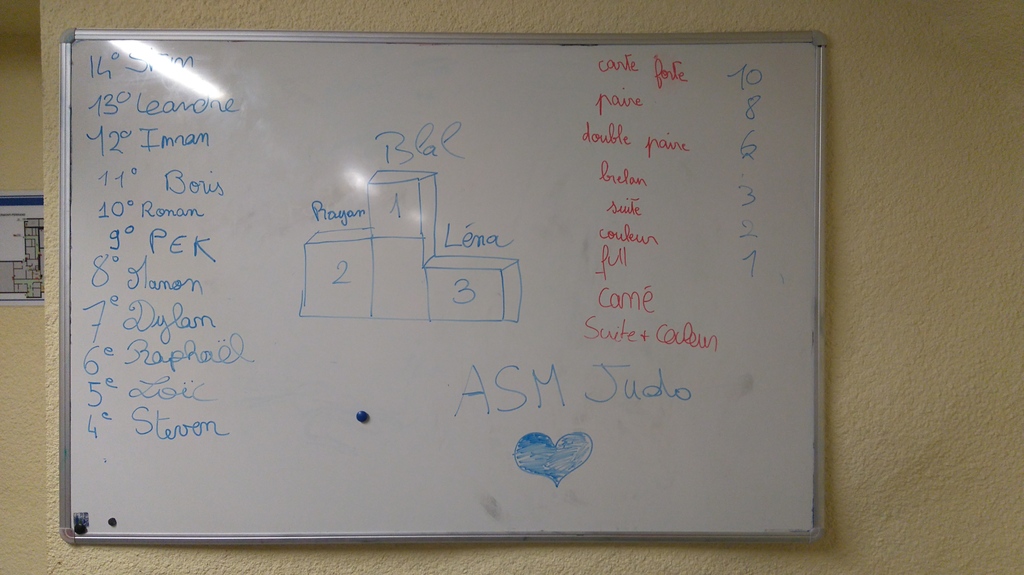 14°
13° Leandre
12° Imran
11° Boris
10° Ronan
9° PEK
8° Manon
7e Dylan
6e Raphaël
5e Loïc
4e Steven
Blal
Rayan
1
Léna
2
3
carte forte 10
paire 8
double paire 6
brelan 3
suite 2
couleur 1
full
Carré
Suite + Couleur
ASM Judo